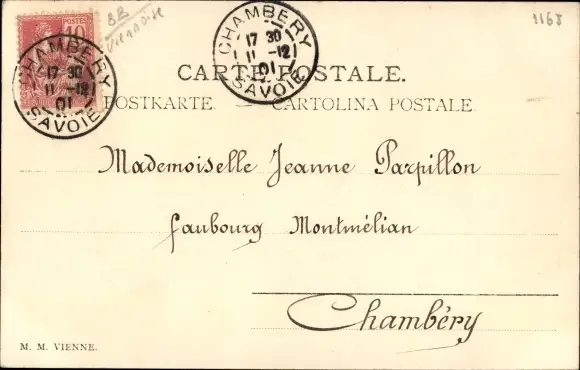 1168
BB
10 POSTES
CHAMBÉRY
17 30
11 -12
01
SAVOIE
CHAMBÉRY
17 30
11 -12
01
SAVOIE
CARTE POSTALE.
POSTKARTE. — CARTOLINA POSTALE.
Mademoiselle Jeanne Parpillon
faubourg Montmélian
Chambéry
M. M. VIENNE.